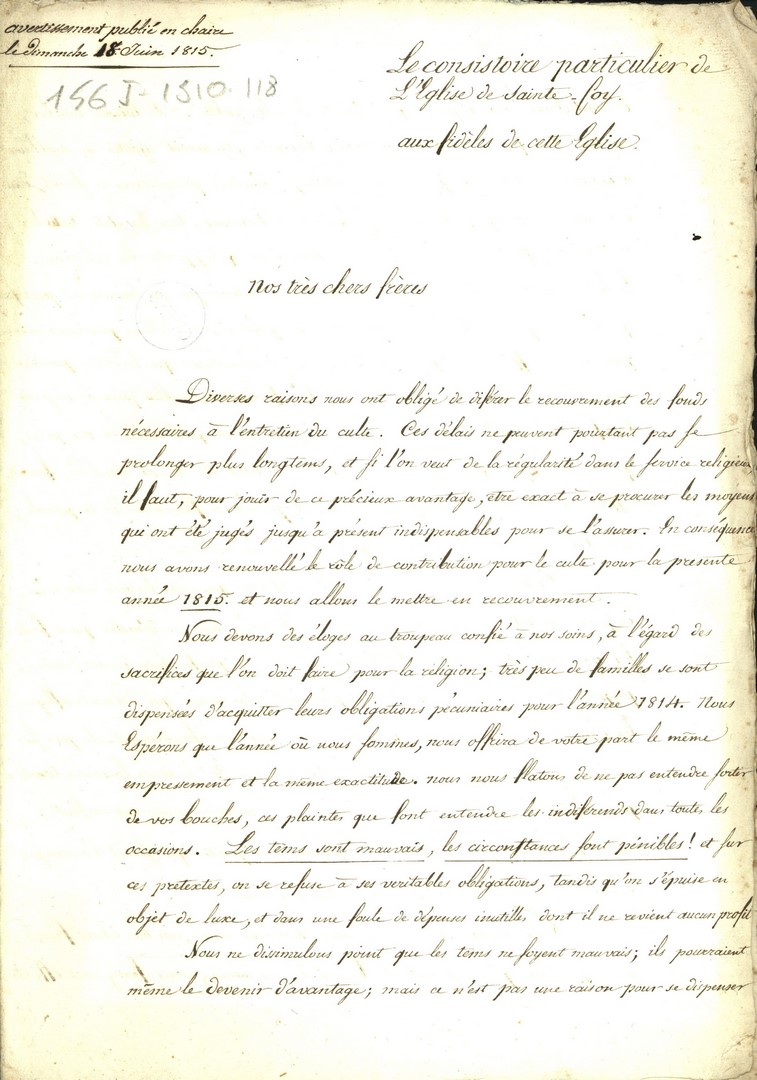 avertissement publié en chaire
le dimanche 18 Juin 1815.
156 J-1S10-118
Le consistoire particulier de
L'Eglise de Sainte-foy.
aux fidèles de cette Eglise.
Nos très chers frères
Diverses raisons nous ont obligé de diférar le recouvrement des fonds
nécessaires à l'entretien du culte. Ces délais ne peuvent pourtant pas se
prolonger plus longtems, et si l'on veut de la régularité dans le service religieux
il faut, pour jouir de ce précieux avantage, etre exact à se procurer les moyens
qui ont été jugés jusqu'a présent indispensables pour se l'assurer. En conséquence
nous avons renouvellé le rôle de contribution pour le culte pour la presente
année 1815. et nous allons le mettre en recouvrement.
Nous devons des éloges au troupeau confié à nos soins, à l'égard des
sacrifices que l'on doit faire pour la religion; très peu de familles se sont
dispensées d'acquitter leurs obligations pécuniaires pour l'année 1814. Nous
Espérons que l'année où nous sommes, nous offrira de votre part le même
empressement et la même exactitude. nous nous flatons de ne pas entendre sortir
de vos bouches, ces plaintes que font entendre les indiferends dans toutes les
occasions. Les tems sont mauvais, les circonstances sont pénibles! et sur
ces pretextes, on se refuse à ses veritables obligations, tandis qu'on s'épuise en
objet de luxe, et dans une foule de dépenses inutilles dont il ne revient aucun profit
Nous ne disimulons point que les tems ne soyent mauvais; ils pourraient
même le devenir d'avantage; mais ce n'est pas une raison pour se dispenser